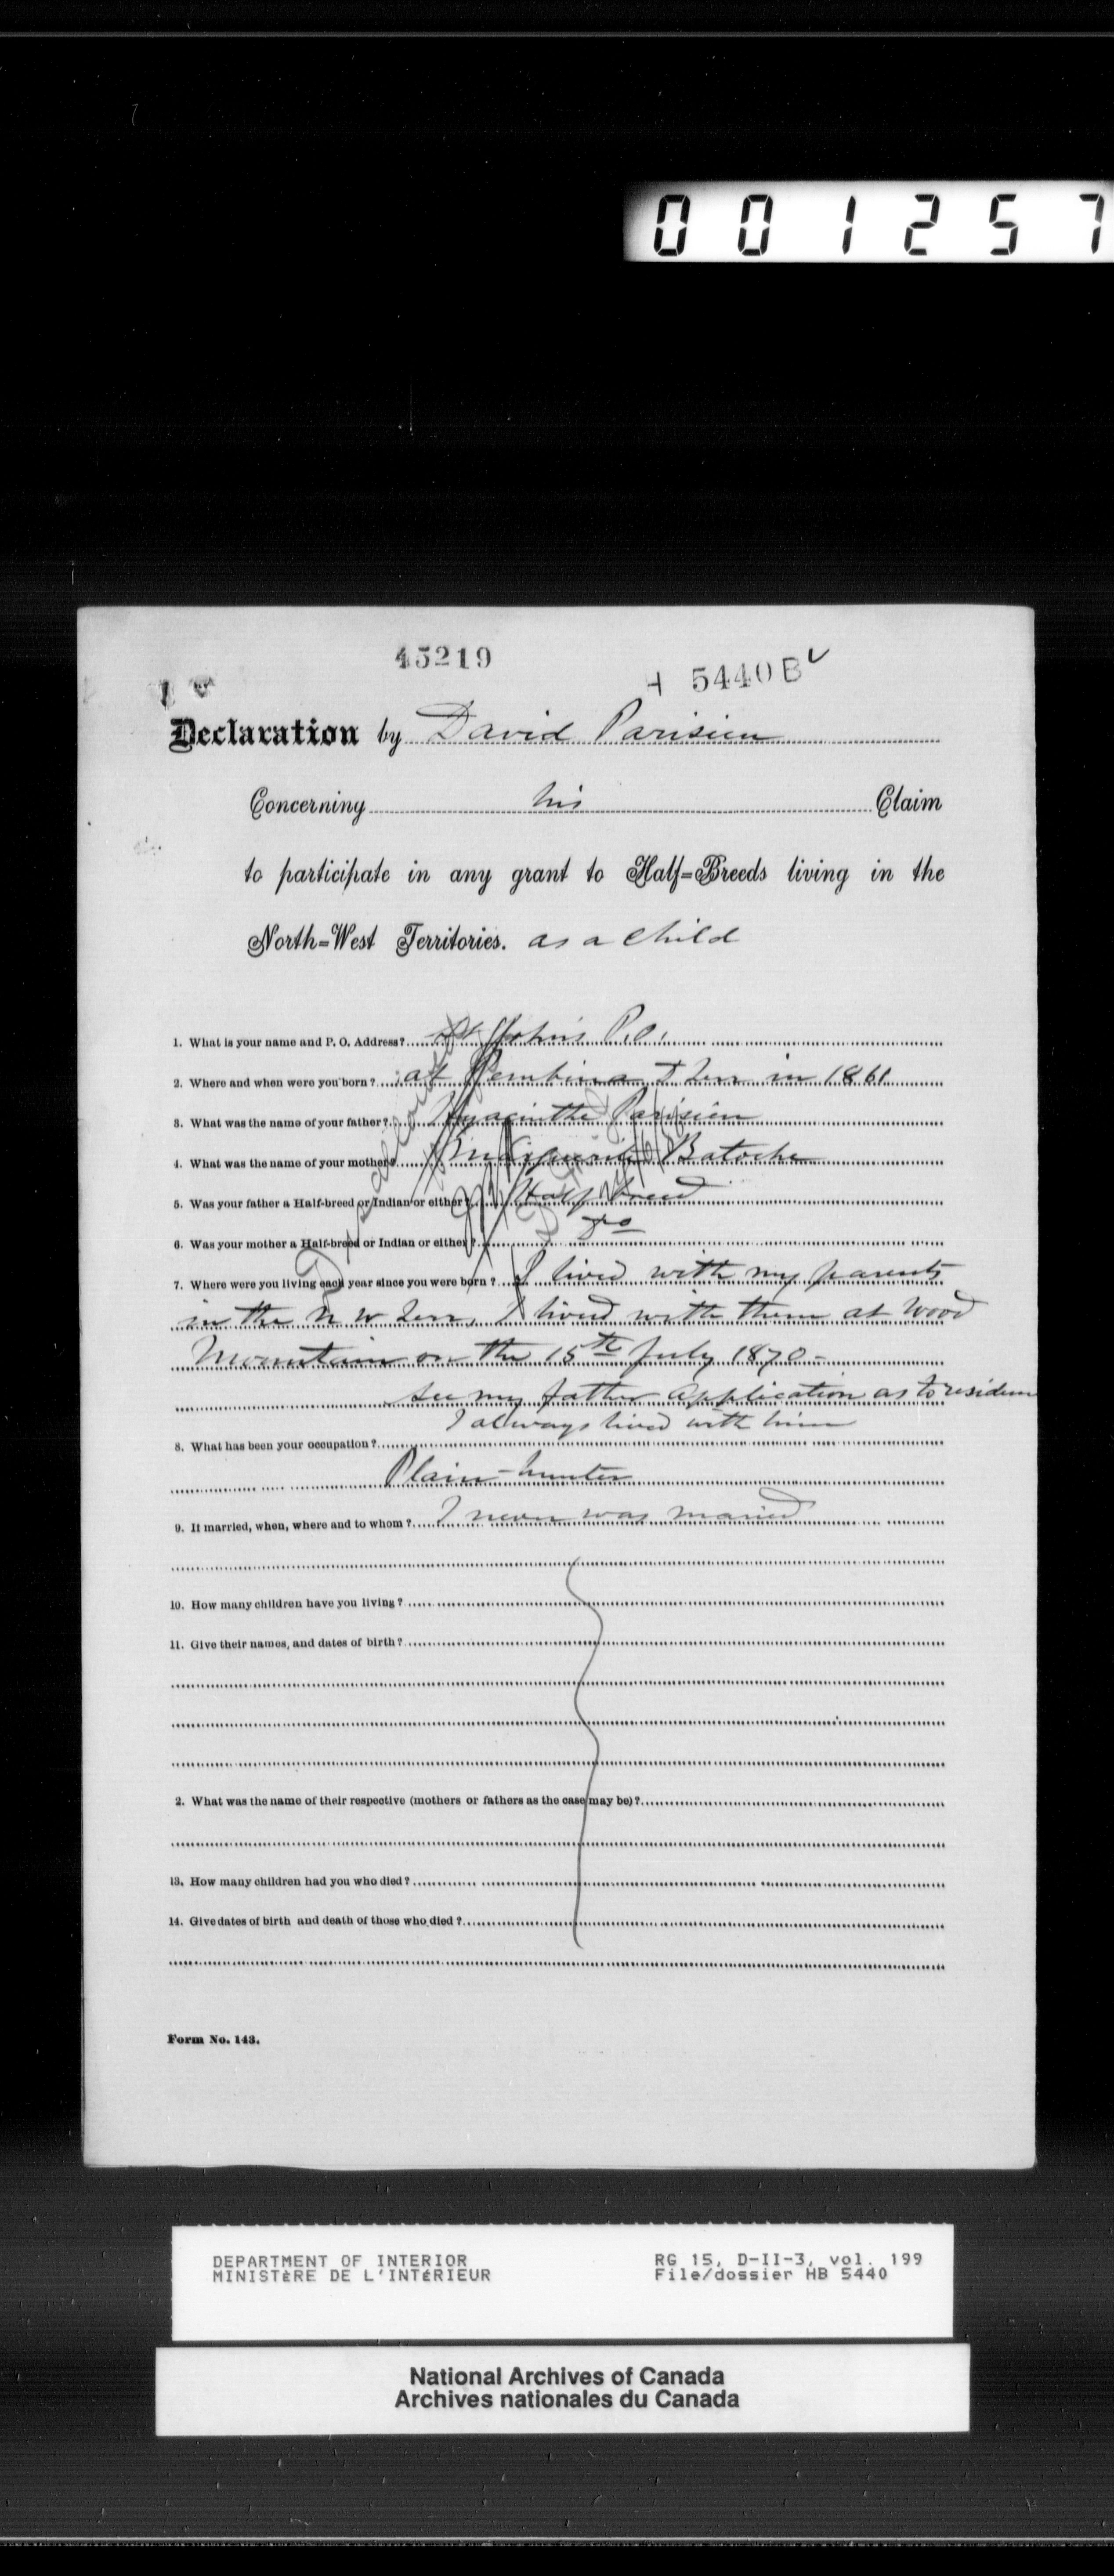 001257
45219
5440 B
Declaration by David Parisien
Concerning his Claim
to participate in any grant to Half=Breeds living in the
North=West Territories. as a child
1. What is your name and P. O. Address? St Johns P.O.
2. Where and when were you born? at Pembina D Terr in 1861
3. What was the name of your father? Hyacinthe Parisien
4. What was the name of your mother? Marguerite Batoche
5. Was your father a Half-breed or Indian or either? Half breed
6. Was your mother a Half-breed or Indian or either? do
7. Where were you living each year since you were born? I lived with my parents
in the N W Terr, I lived with them at Wood
Mountain on the 15th July 1870-
see my father application as to residence
I always lived with him
8. What has been your occupation?
Plain-hunter
9. If married, when, where and to whom? I never was maried
10. How many children have you living?
11. Give their names, and dates of birth?
2. What was the name of their respective (mothers or fathers as the case may be)?
13. How many children had you who died?
14. Give dates of birth and death of those who died?
Form No. 143.
DEPARTMENT OF INTERIOR
MINISTÈRE DE L'INTÉRIEUR
RG 15, D-II-3, vol. 199
File/dossier HB 5440
National Archives of Canada
Archives nationales du Canada